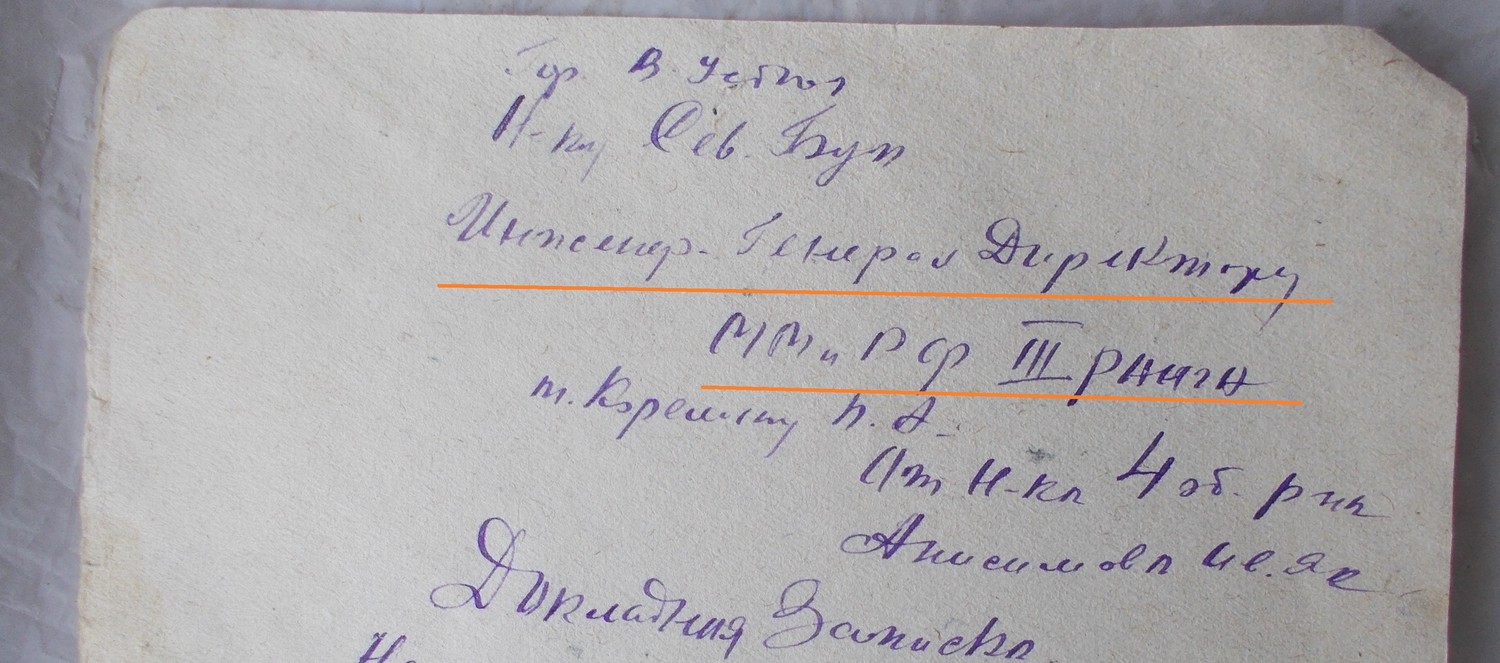 Гор. В. Устюг
Н-ку Сев. Буп
Инженер-Генерал Директору
ММиРФ III ранга
т. Корелину П. А.
От Н-ка 4 об. рна
Анисимова Ив. Як
Докладная Записка